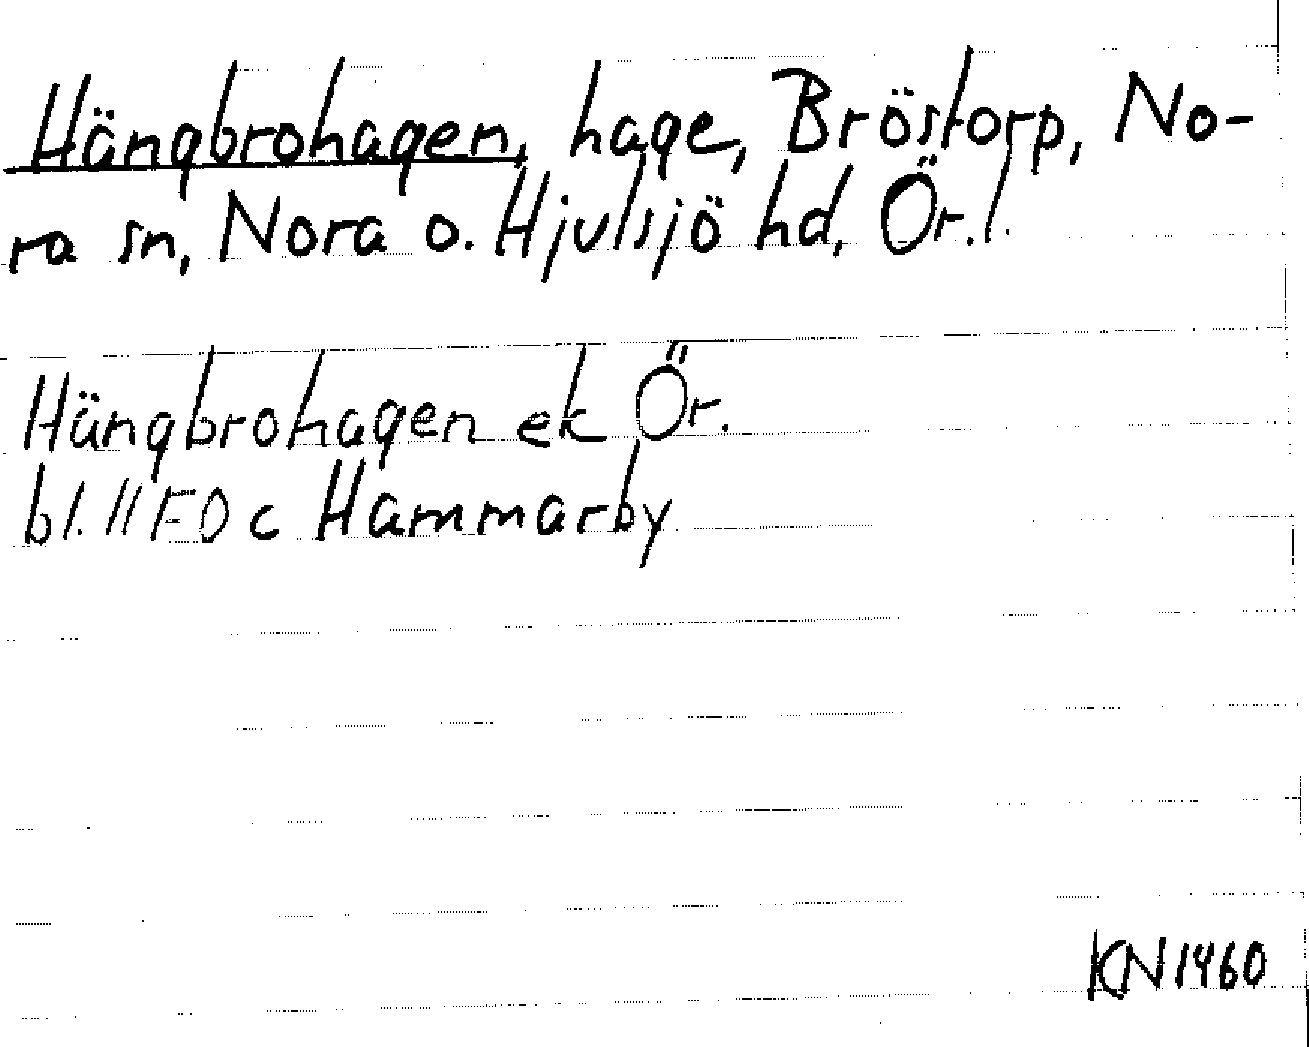 Hängbrohagen, hage, Bröstorp, No-
ra sn, Nora o. Hjulsjö hd, Ör. l.
Hängbrohagen ek Ör.
bl. 11 F0 c Hammarby
KN1460